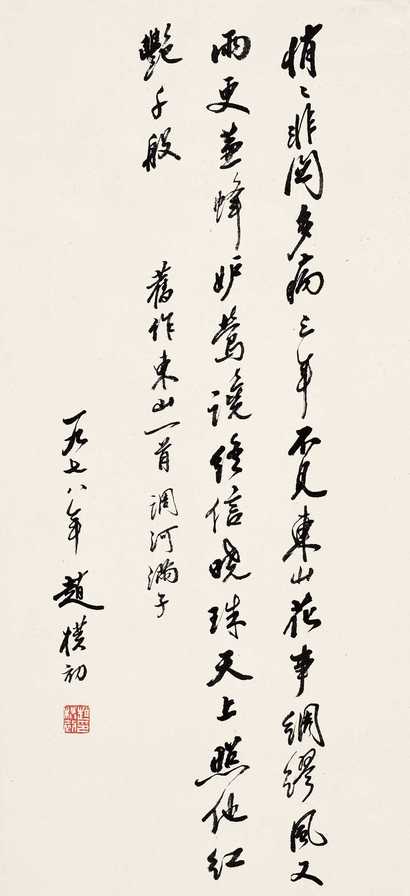 悄〻非関多病三年不見東山花事綢繆風又
雨更兼蜂妒鶯讒終信曉珠天上照他紅
艷千般
舊作東山一首 調河滿子
一九七八年 趙樸初